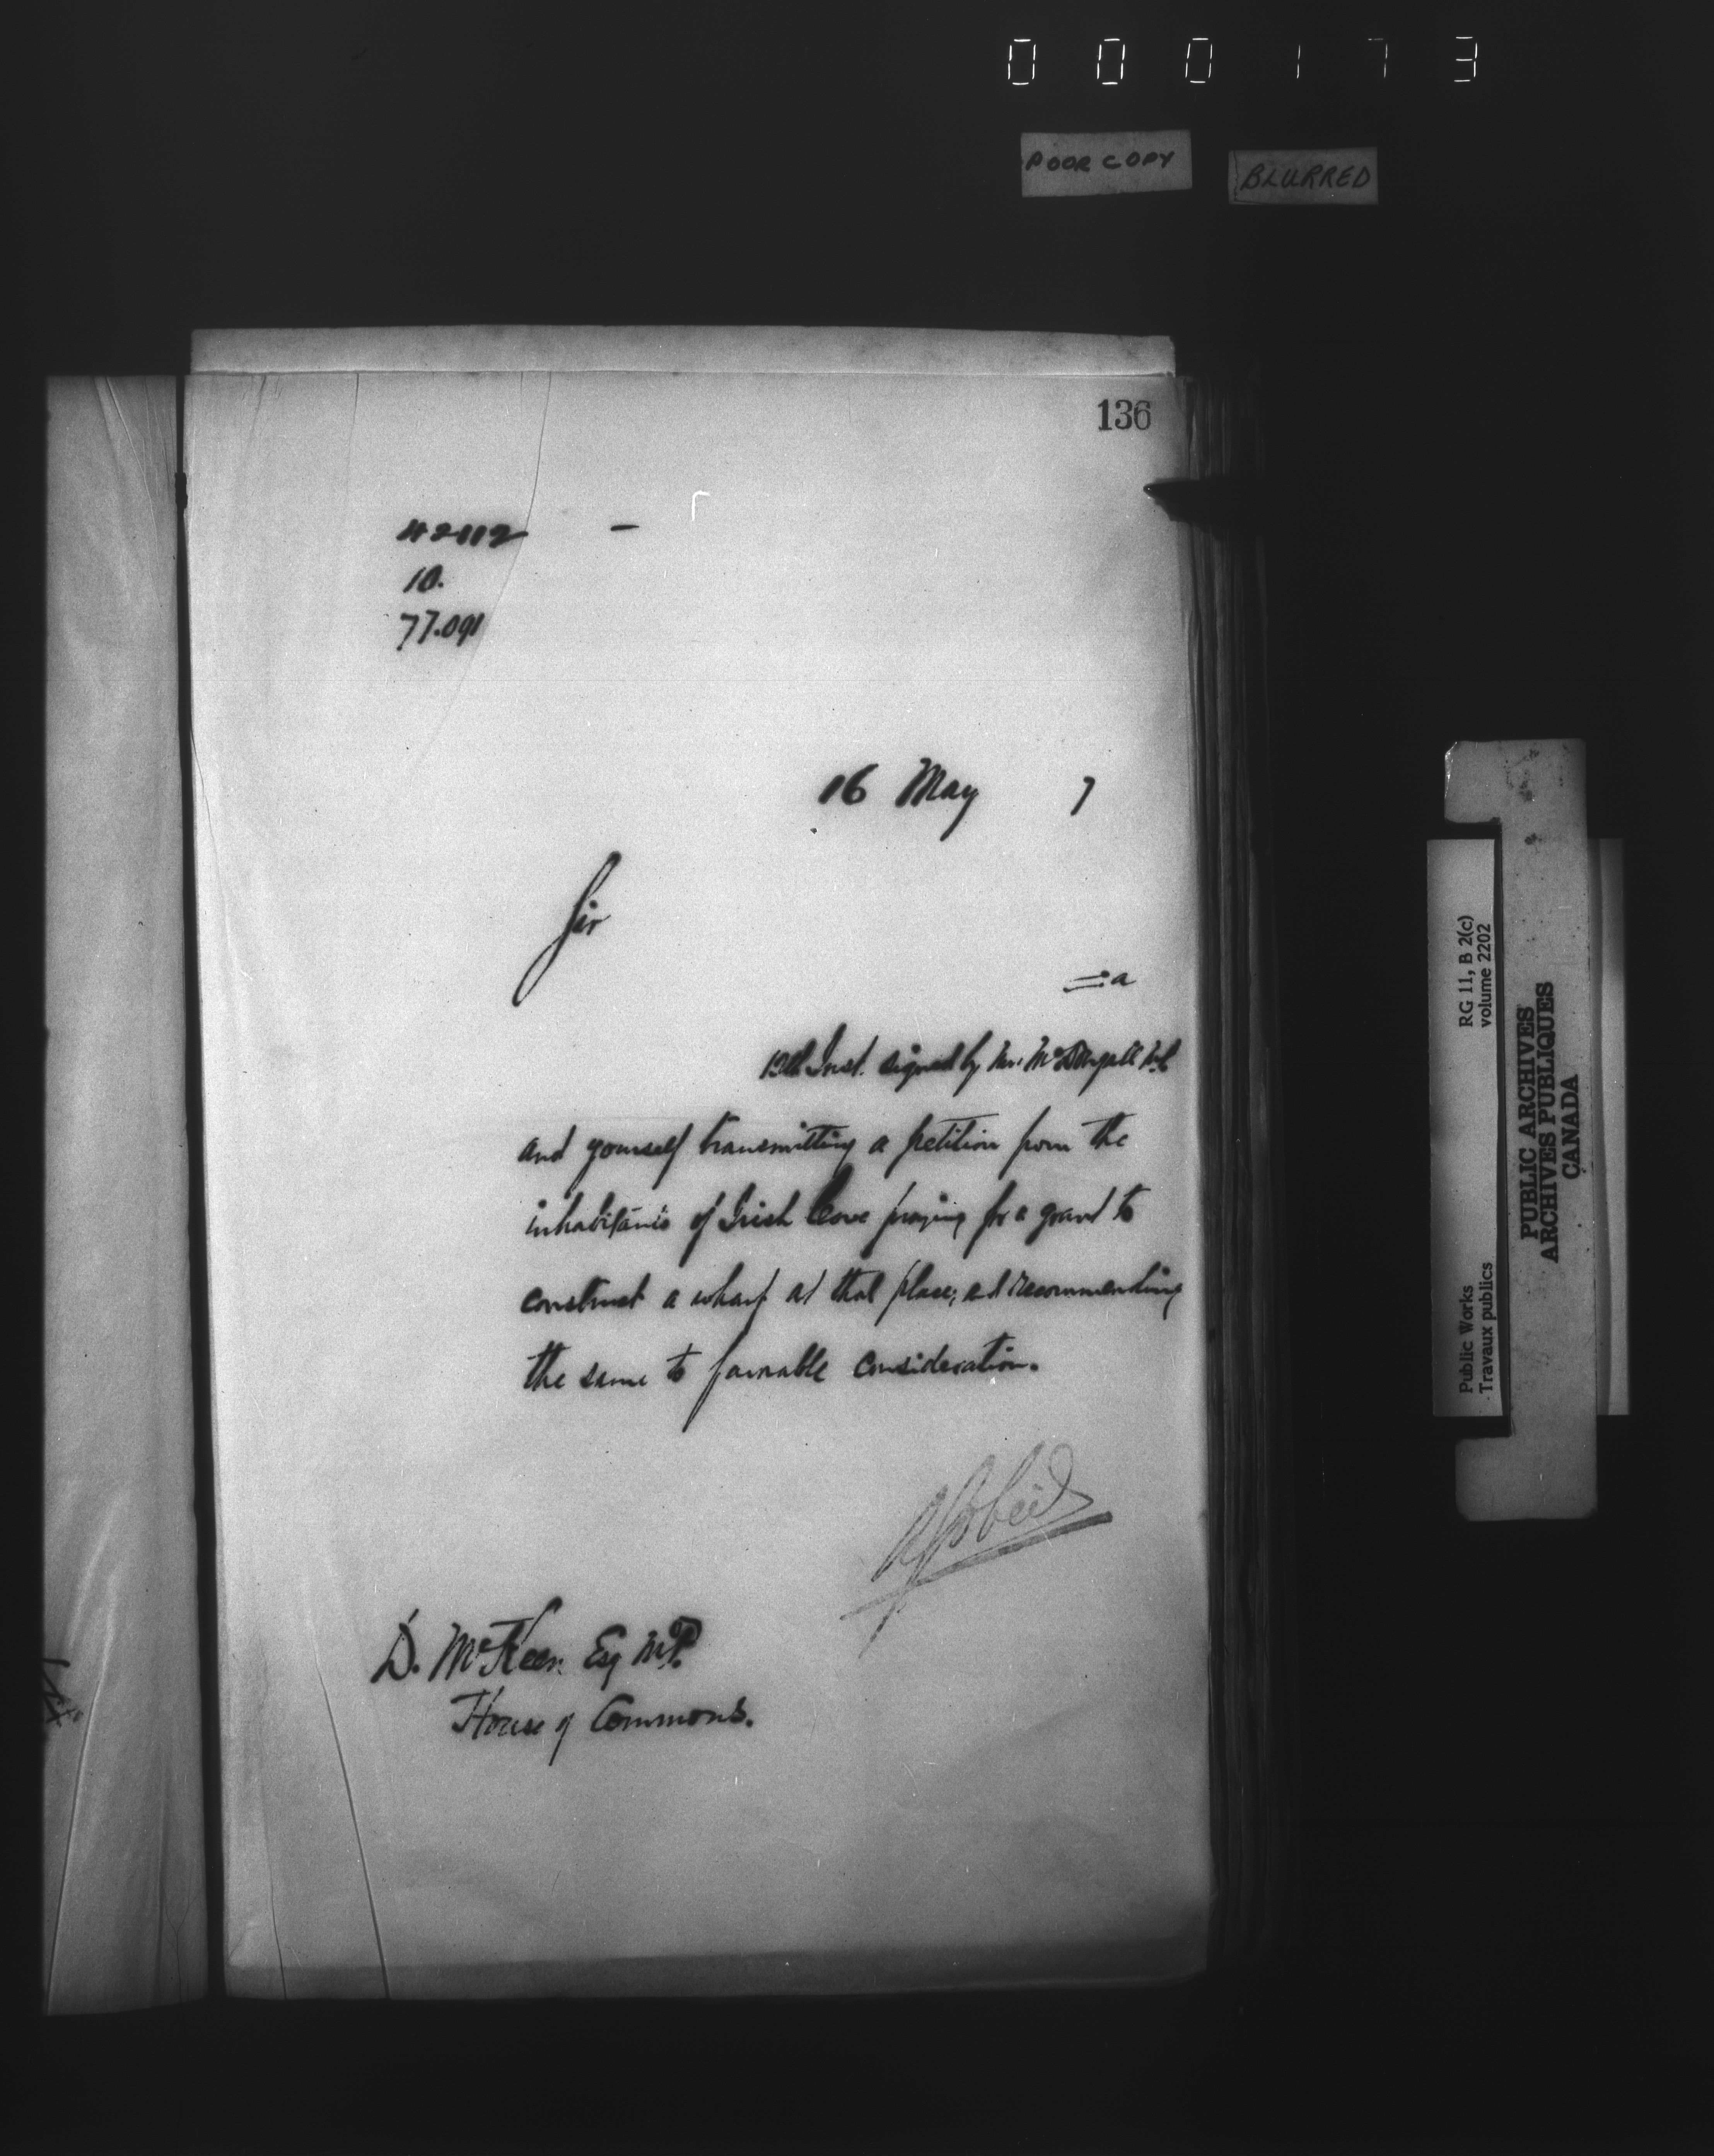 000173
POOR COPY
BLURRED
136
42112 –
10.
77.091
16 May 7
Sir
a
Inst. signed by Mr. McDougall M.P.
and yourself transmitting a petition from the
inhabitants of Irish Cove praying for a grant to
construct a wharf at that place; and recommending
the same to favorable consideration.
D. McKeen Esq M.P.
House of Commons.
RG 11, B 2(c)
volume 2202
Public Works
Travaux publics
PUBLIC ARCHIVES
ARCHIVES PUBLIQUES
CANADA